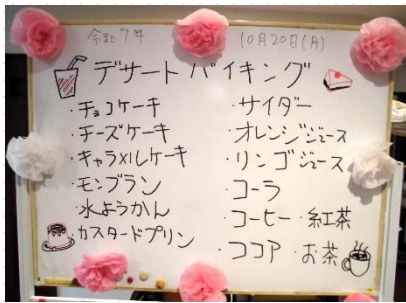 令和7年 10月20日(月)
デザートバイキング
・チョコケーキ
・チーズケーキ
・キャラメルケーキ
・モンブラン
・水ようかん
・カスタードプリン
・サイダー
・オレンジジュース
・リンゴジュース
・コーラ
・コーヒー・紅茶
・ココア・お茶